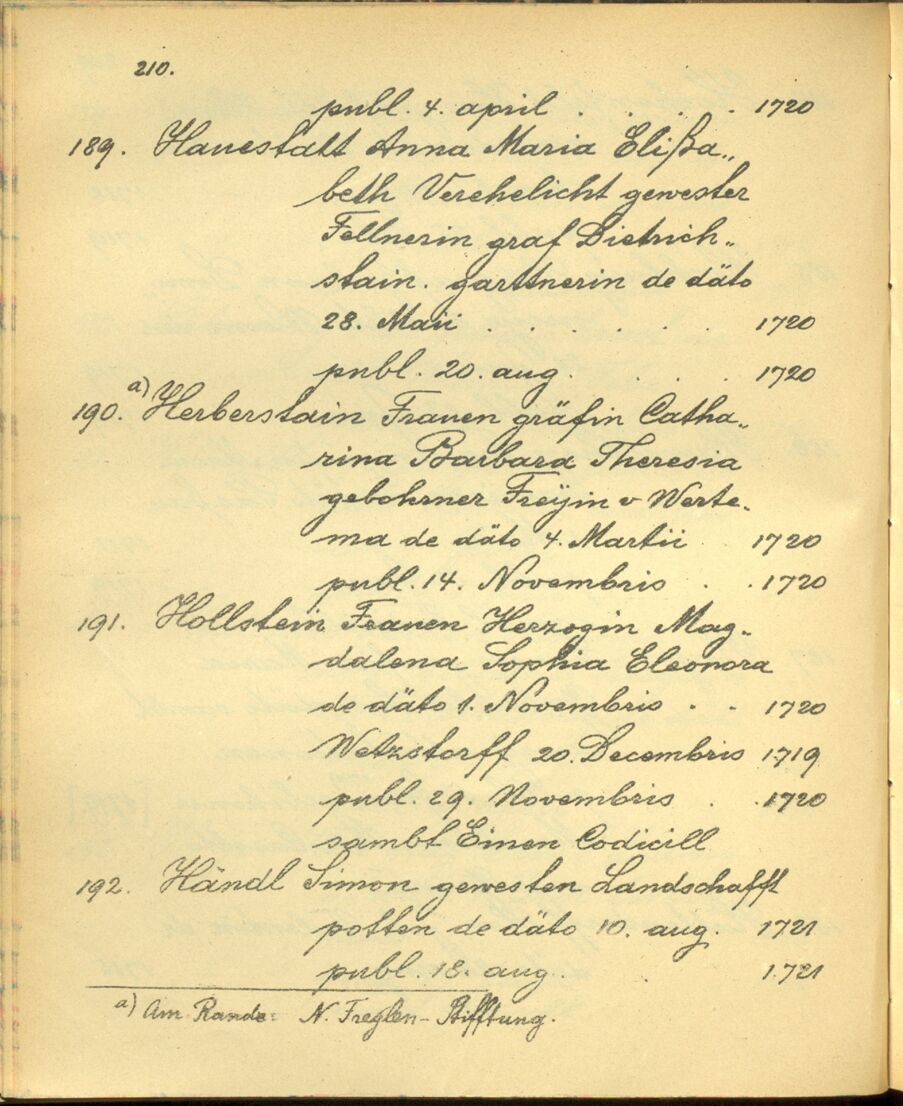 210.
publ. 4. april . . . . 1720
189. Hauestatt Anna Maria Elißa„
beth Verehelicht gewester
Fellnerin graf Dietrich„
stain. garttnerin de däto
28. Maii . . . . . . 1720
publ. 20. aug. . . . 1720
190. a) Herberstain Frauen gräfin Catha„
rina Barbara Theresia
gebohrner Freÿin v Werte„
ma de däto 4. Martii . 1720
publ. 14. Novembris . . 1720
191. Hollstein Frauen Herzogin Mag„
dalena Sophia Eleonora
de däto 1. Novembris . . 1720
Wetzstorff 20. Decembris 1719
publ. 29. Novembris . . 1720
sambt Einen Codicill
192. Händl Simon gewesten Landschafft
potten de däto 10. aug. 1721
publ. 18. aug. . 1721
a) Am Rande: N. Freglen-Stifftung.